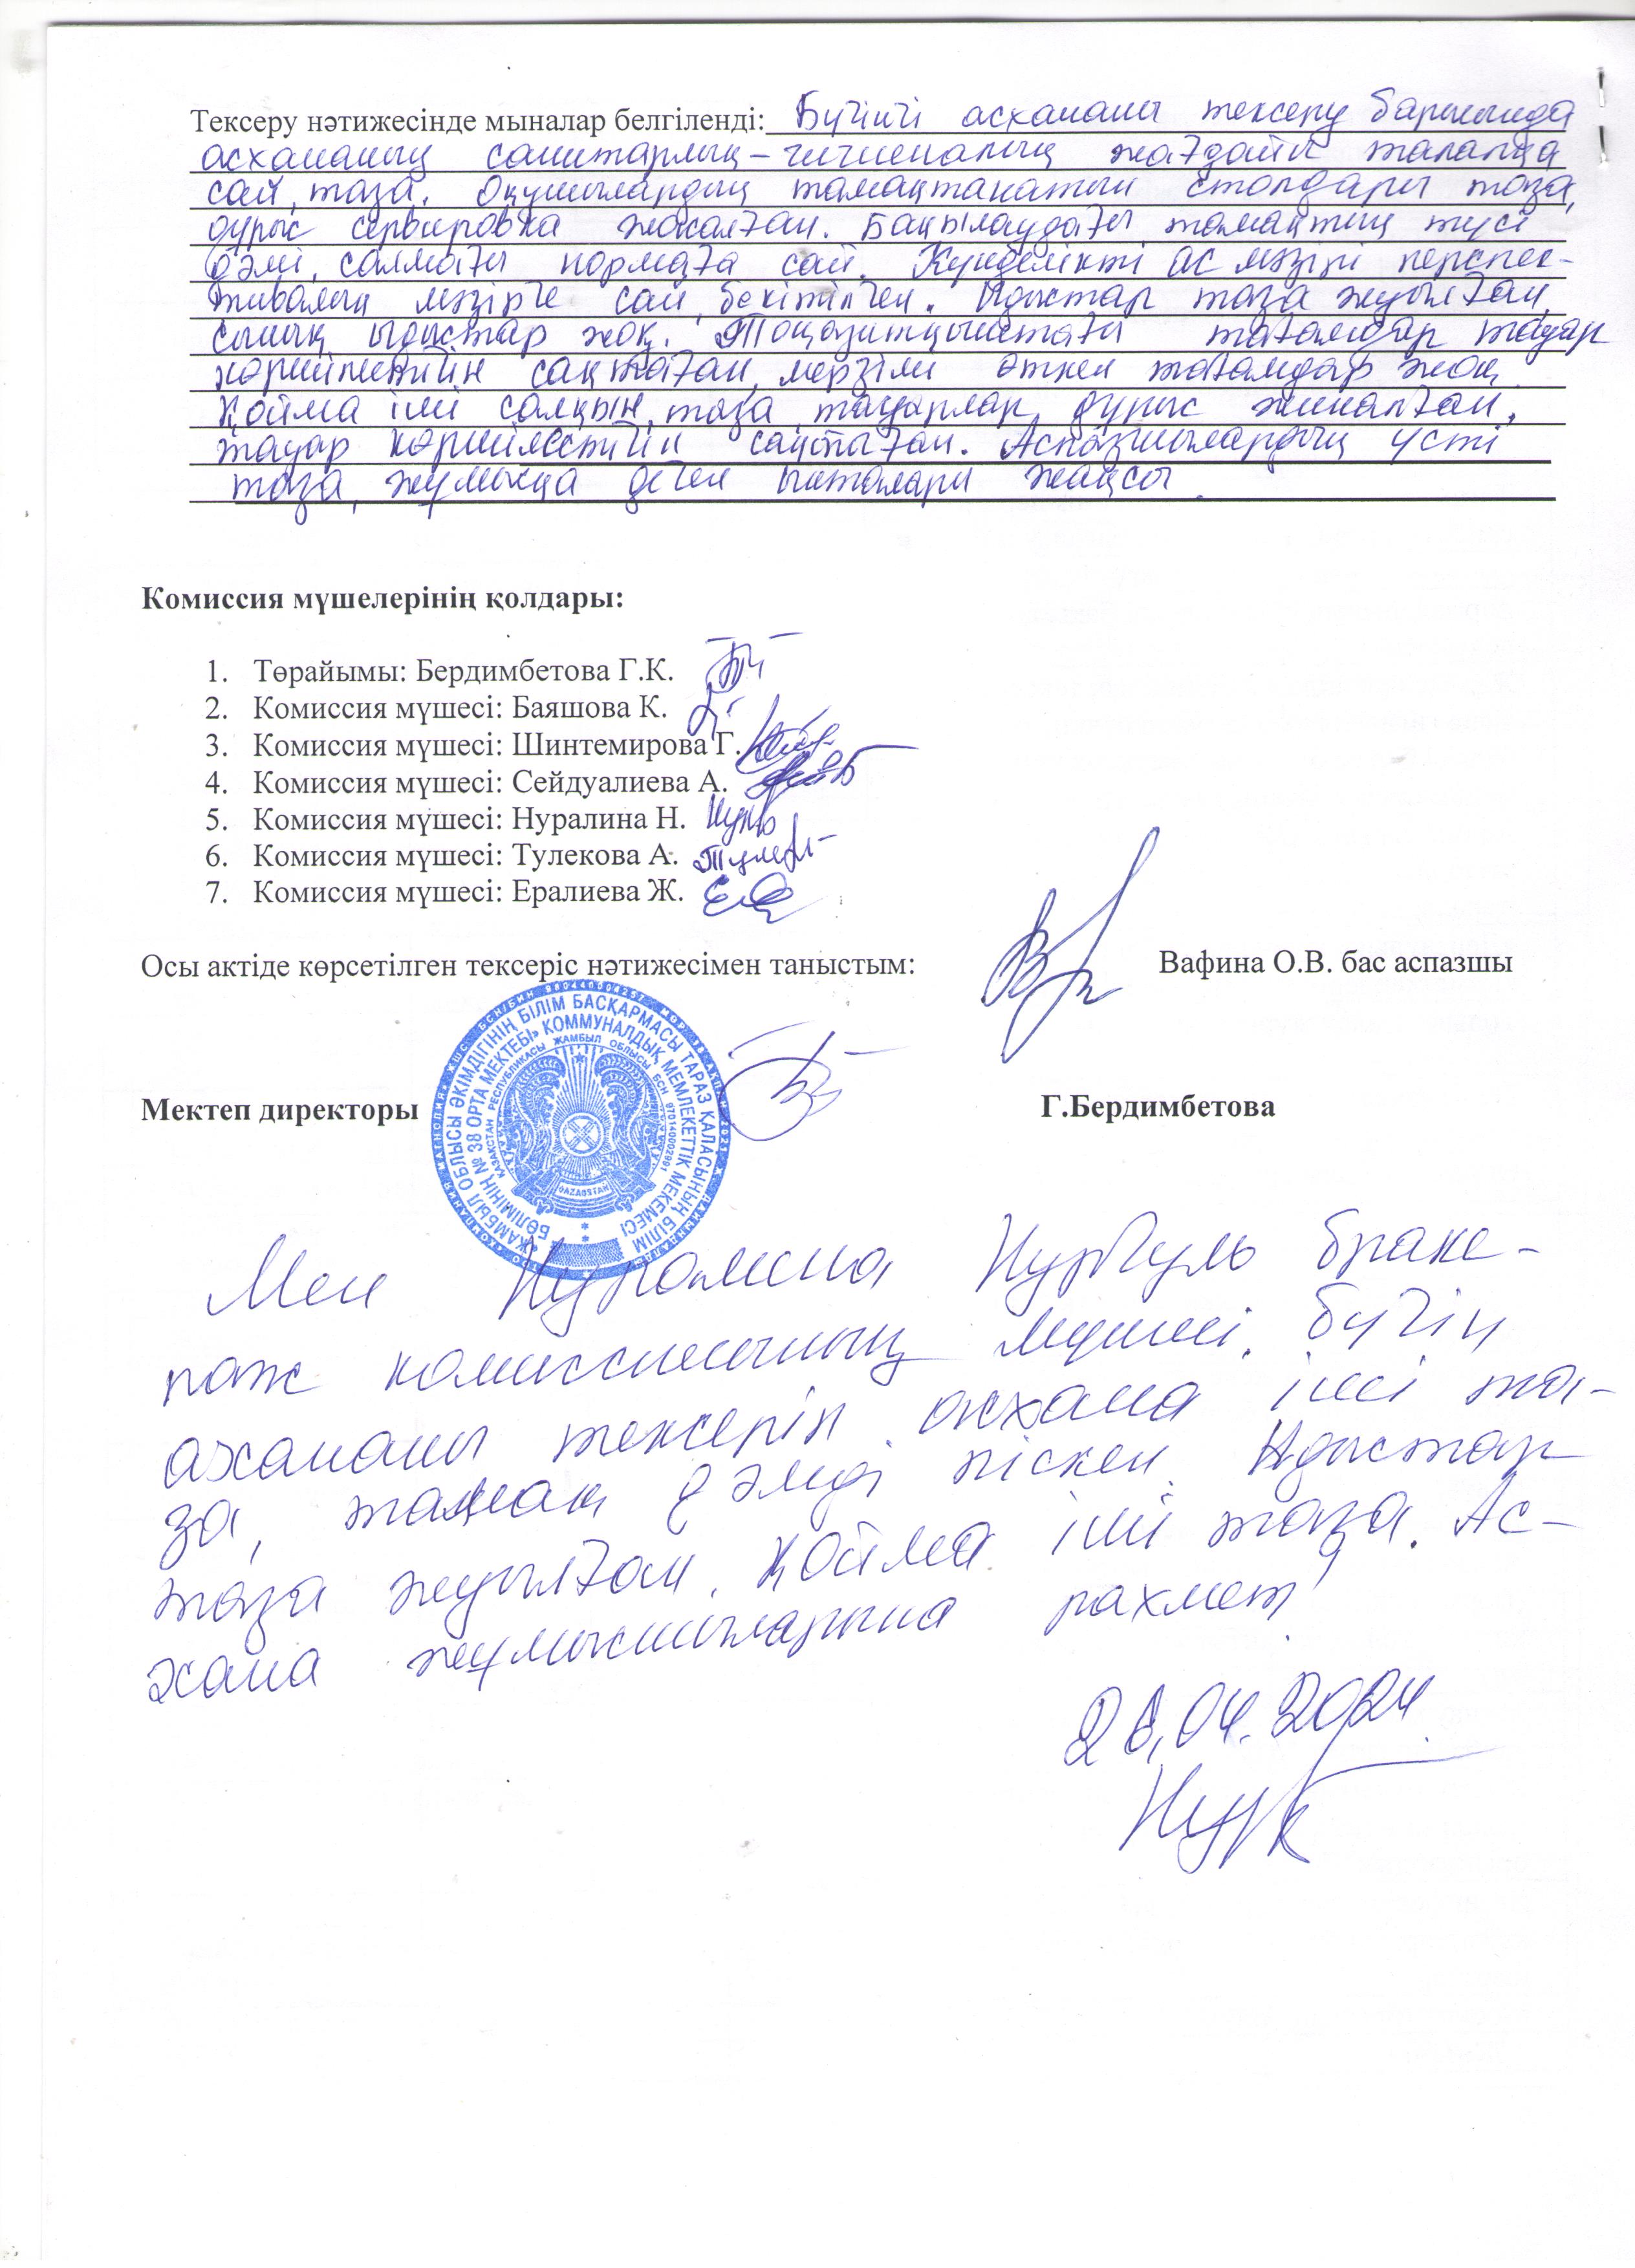 Тексеру нәтижесінде мыналар белгіленді: Бүгінгі асхананы тексеру барысында
асхананың санитарлық-гигиеналық жағдайы талапқа
сай, таза. Оқушылардың тамақтанатын столдары таза,
дұрыс сервировка жасалған. Бақылаудағы тамақтың түсі
дәмі, салмағы нормаға сай. Күнделікті ас мәзірі перспек-
тивалық мәзірге сай бекітілген. Ыдыстар таза жуылған,
сынық ыдыстар жоқ. Тоңазытқыштағы тағамдар тауар
көршілестігін сақтаған, мерзімі өткен тағамдар жоқ
Қойма іші салқын, таза, тауарлар дұрыс жиналған,
тауар көршілестігін сақтаған. Аспазшылардың үсті
таза, жұмысқа деген ынталары жақсы.
Комиссия мүшелерінің қолдары:
1. Төрайымы: Бердимбетова Г.К.
2. Комиссия мүшесі: Баяшова К.
3. Комиссия мүшесі: Шинтемирова Г.
4. Комиссия мүшесі: Сейдуалиева А.
5. Комиссия мүшесі: Нуралина Н.
6. Комиссия мүшесі: Тулекова А.
7. Комиссия мүшесі: Ералиева Ж.
Осы актіде көрсетілген тексеріс нәтижесімен таныстым: Вафина О.В. бас аспазшы
Мектеп директоры Г.Бердимбетова
«ЖАМБЫЛ ОБЛЫСЫ ӘКІМДІГІНІҢ БІЛІМ БАСҚАРМАСЫ ТАРАЗ ҚАЛАСЫНЫҢ БІЛІМ
БӨЛІМІНІҢ № 38 ОРТА МЕКТЕБІ» КОММУНАЛДЫҚ МЕМЛЕКЕТТІК МЕКЕМЕСІ
ҚАЗАҚСТАН РЕСПУБЛИКАСЫ ЖАМБЫЛ ОБЛЫСЫ БСН
QAZAQSTAN
Мен Нуралина Нургуль браке-
раж комиссиясының мүшесі. бүгін
асхананы тексеріп асхана іші та-
за, тамақ дәмді піскен. Ыдыстар
таза жуылған. Қойма іші таза. Ас-
хана жұмысшыларына рахмет!
26.04.2024